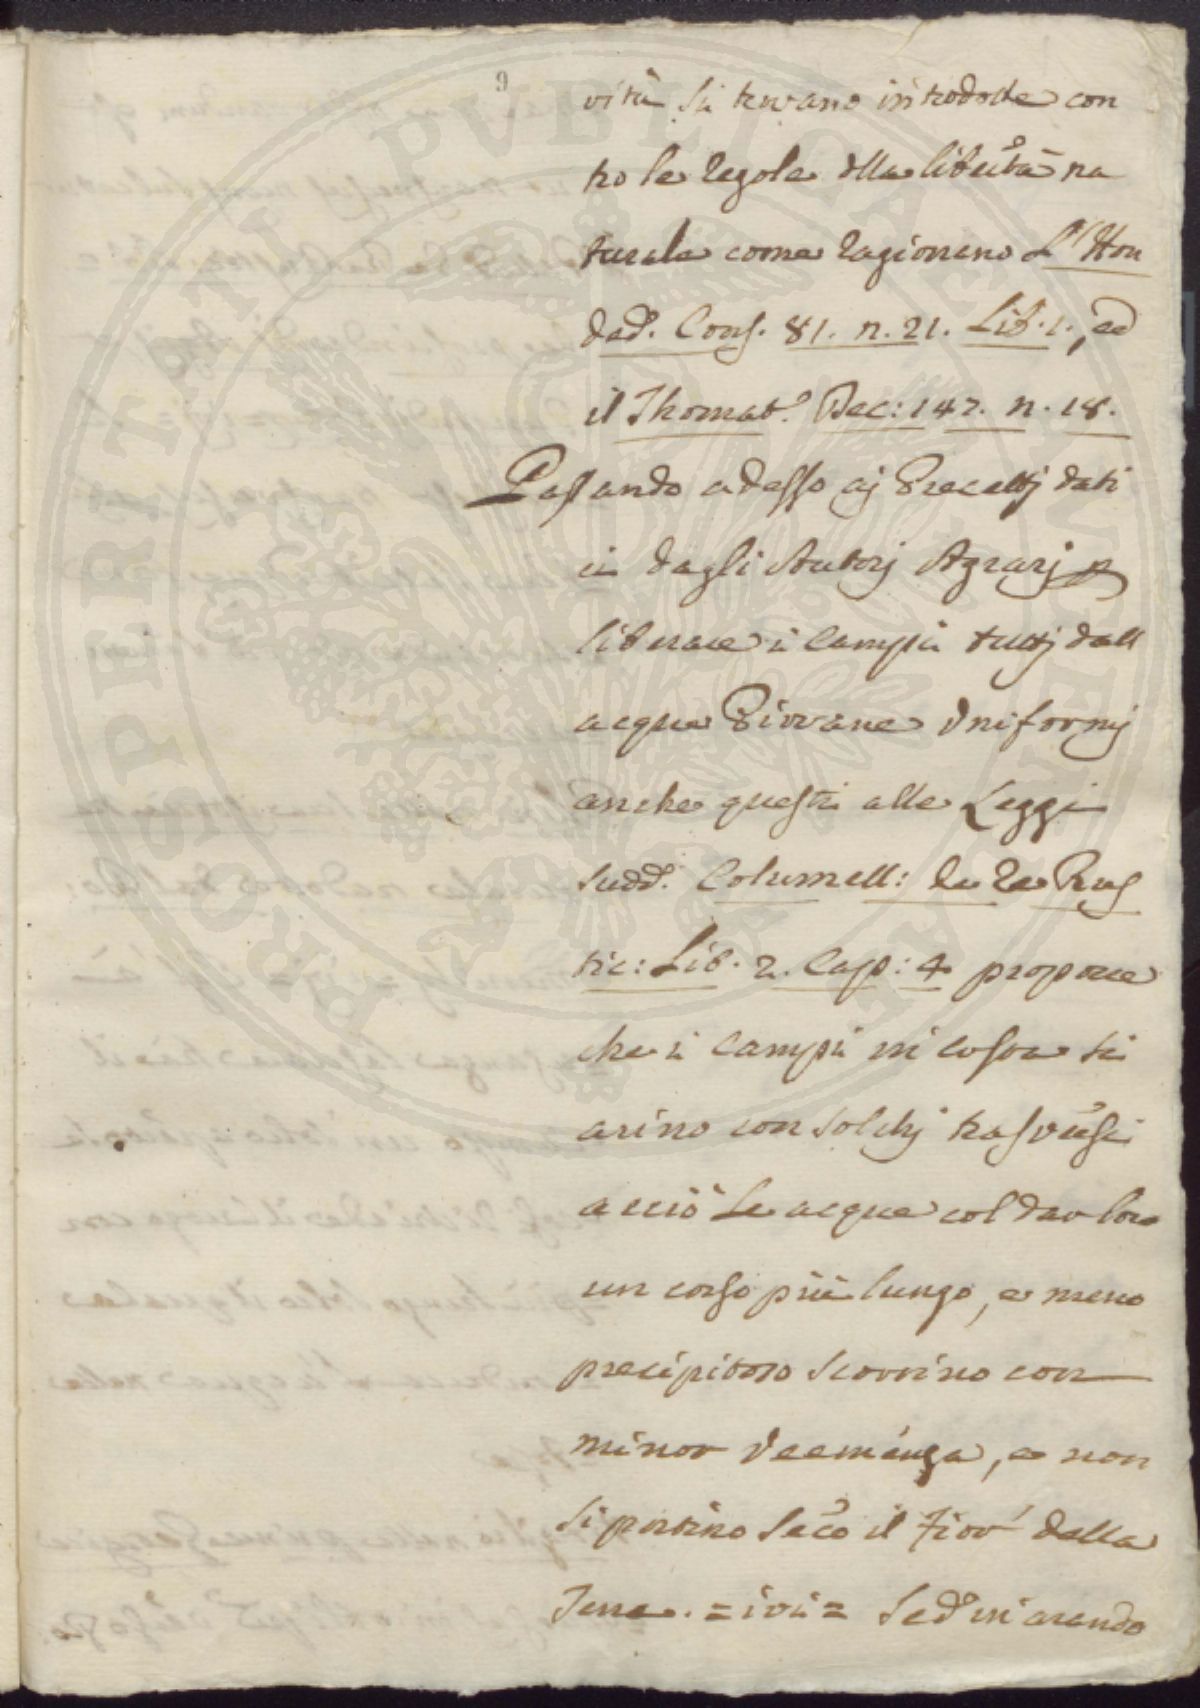 9
vitù si trovano introdotte con
tro le regole dlla libertà na
turale come ragionano L'Hon
ded. Cons. 81. n. 21. Lib. 1., ed
il Thomat. Dec: 147. n. 18.
Passando adesso aj Precettj dati
ci dagli Autorj Agrarj p
liberare i Campi tuttj dall
acque Piovane Vniformj
anche questi alle Leggi
sudd. Columell: de Re Rus
tic: Lib. 2. Cap: 4 propone
che i Campi in costa si
arino con solchj trasversi
acciò Le acque col dar loro
un corso più lungo, e meno
precipitoso scorrino con
minor veemenza, e non
si portino seco il Fior della
Terra. = ivi = Sed in arando
PROSPERITATI PVBLICAE AVGENDAE